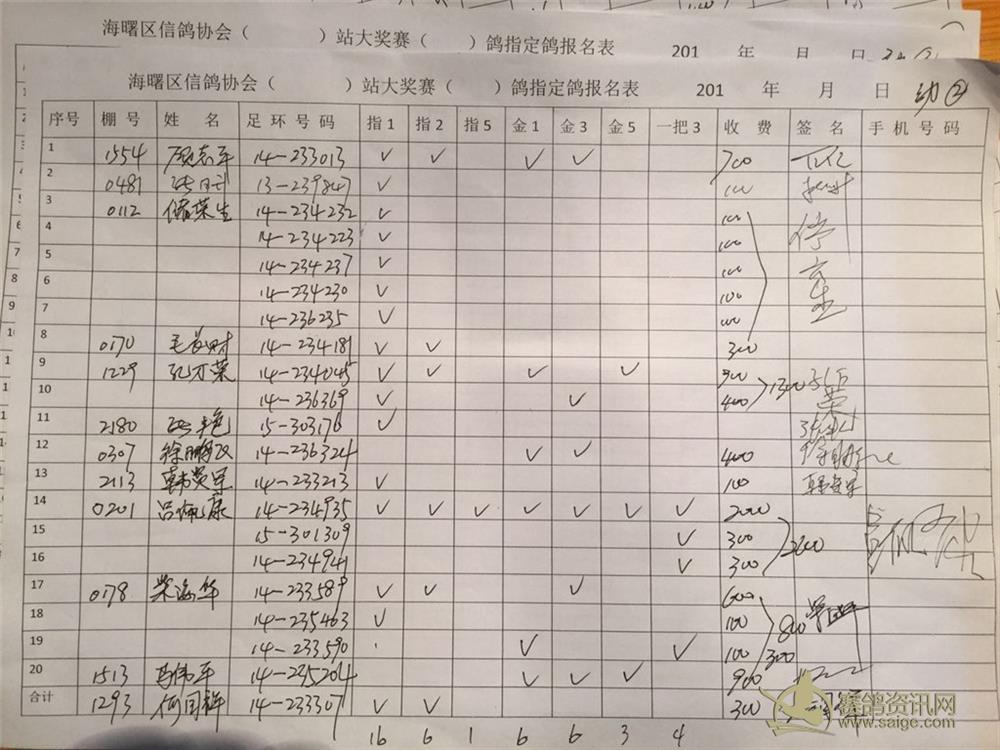 海曙区信鸽协会（ ）站大奖赛（ ）鸽指定鸽报名表 201 年 月 日
海曙区信鸽协会（ ）站大奖赛（ ）鸽指定鸽报名表 201 年 月 日 幼②
序号 棚号 姓名 足环号码 指1 指2 指5 金1 金3 金5 一把3 收费 签名 手机号码
1 1554 14-233013 ✓ ✓ ✓ ✓ 700
2 0481 13-239847 ✓ 100
3 0112 储荣生 14-234232 ✓ 100
4 14-234223 ✓ 100
5 14-234237 ✓ 100
6 14-234230 ✓ 100
7 14-236235 ✓ 100
8 0170 毛长财 14-234181 ✓ ✓ 300
9 1229 孔万荣 14-234045 ✓ ✓ ✓ ✓ 900 1300
10 14-236369 ✓ ✓ 400
11 2180 15-303176 ✓
12 0307 14-236324 ✓ ✓ 400
13 2113 韩赞军 14-233213 ✓ 100 韩赞军
14 0201 吕佩康 14-234935 ✓ ✓ ✓ ✓ ✓ ✓ ✓ 2000
15 15-301309 ✓ 300 2600
16 14-234941 ✓ 300
17 0178 柴海华 14-233589 ✓ ✓ ✓ 600
18 14-235463 ✓ 100 800
19 14-233590 ✓ ✓ 100 300
20 1513 14-235204 ✓ ✓ ✓ 900
合计 1293 何国祥 14-233071 ✓ ✓ 300
16 6 1 6 6 3 4
赛鸽资讯网
www.saige.com